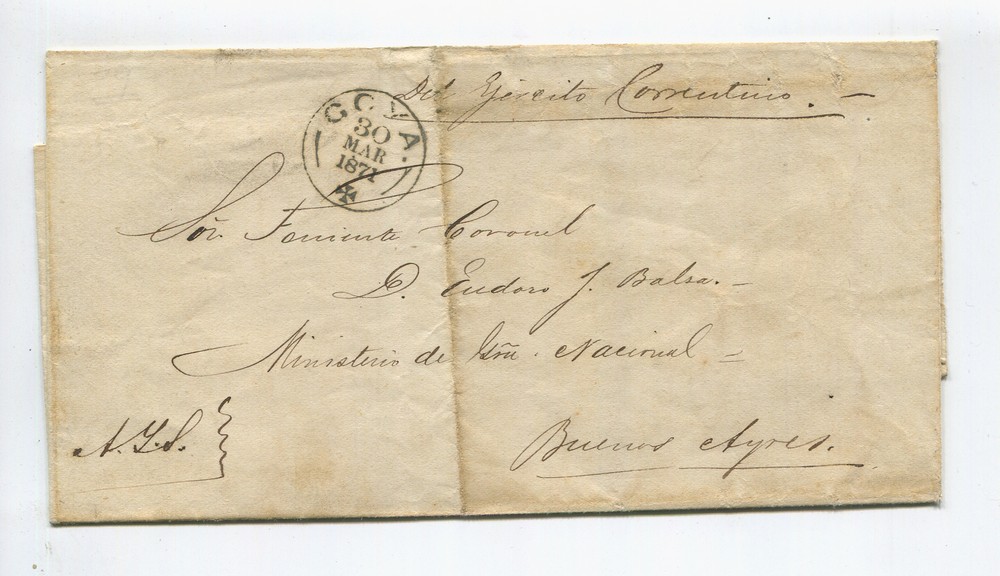 Del Ejército Correntino. —
GOYA.
30
MAR
1871
Sõr. Teniente Coronel
D. Eudoro J. Balsa. —
Ministerio de Grra. Nacional =
A.L.S.
Buenos Ayres.